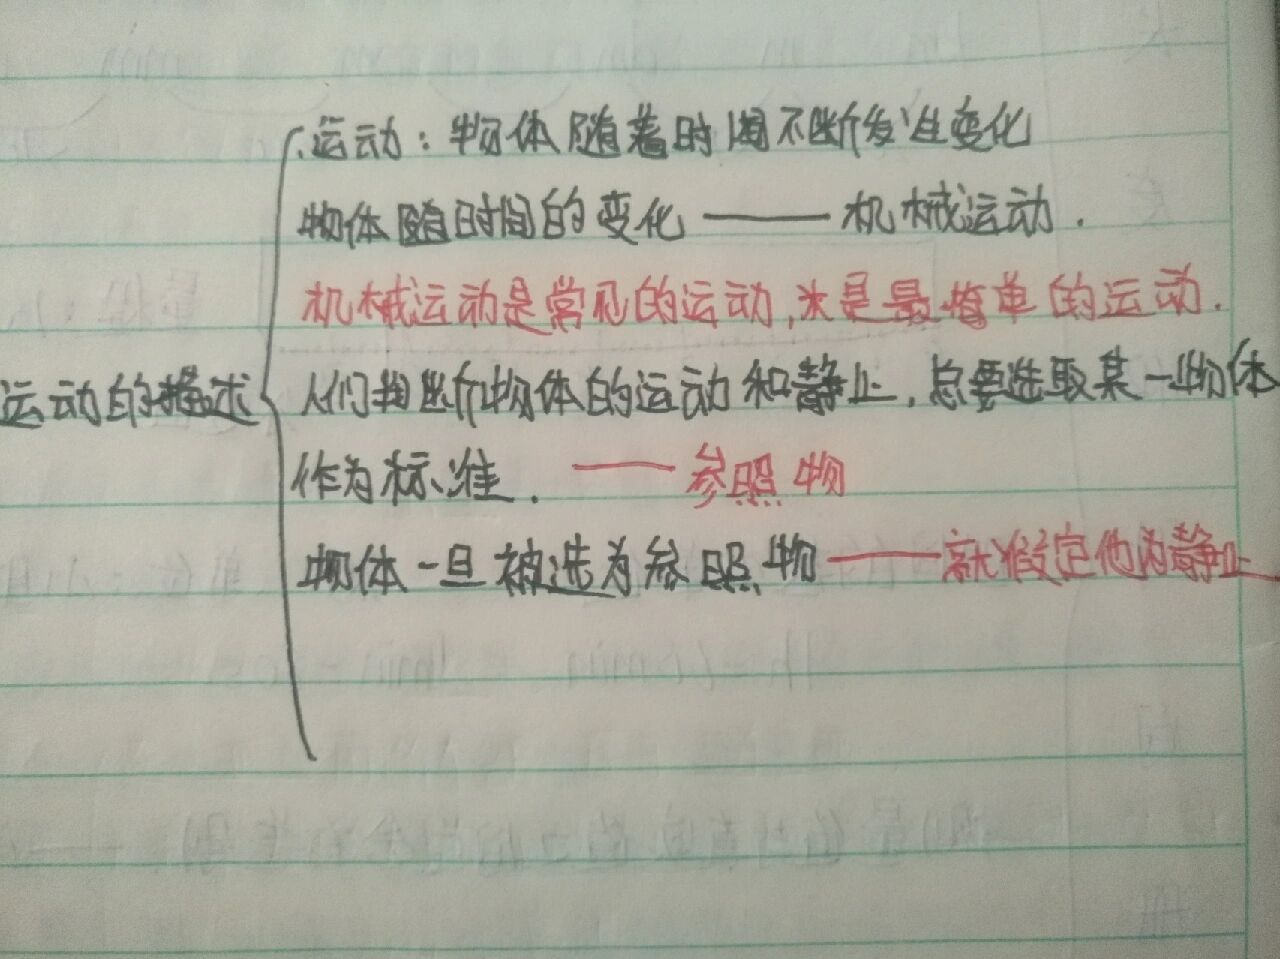 运动：物体随着时间不断发生变化
物体随时间的变化——机械运动.
机械运动是常见的运动,也是最简单的运动.
运动的描述
人们判断物体的运动和静止,总要选取某一物体
作为标准. ——参照物
物体一旦被选为参照物——就假定他为静止